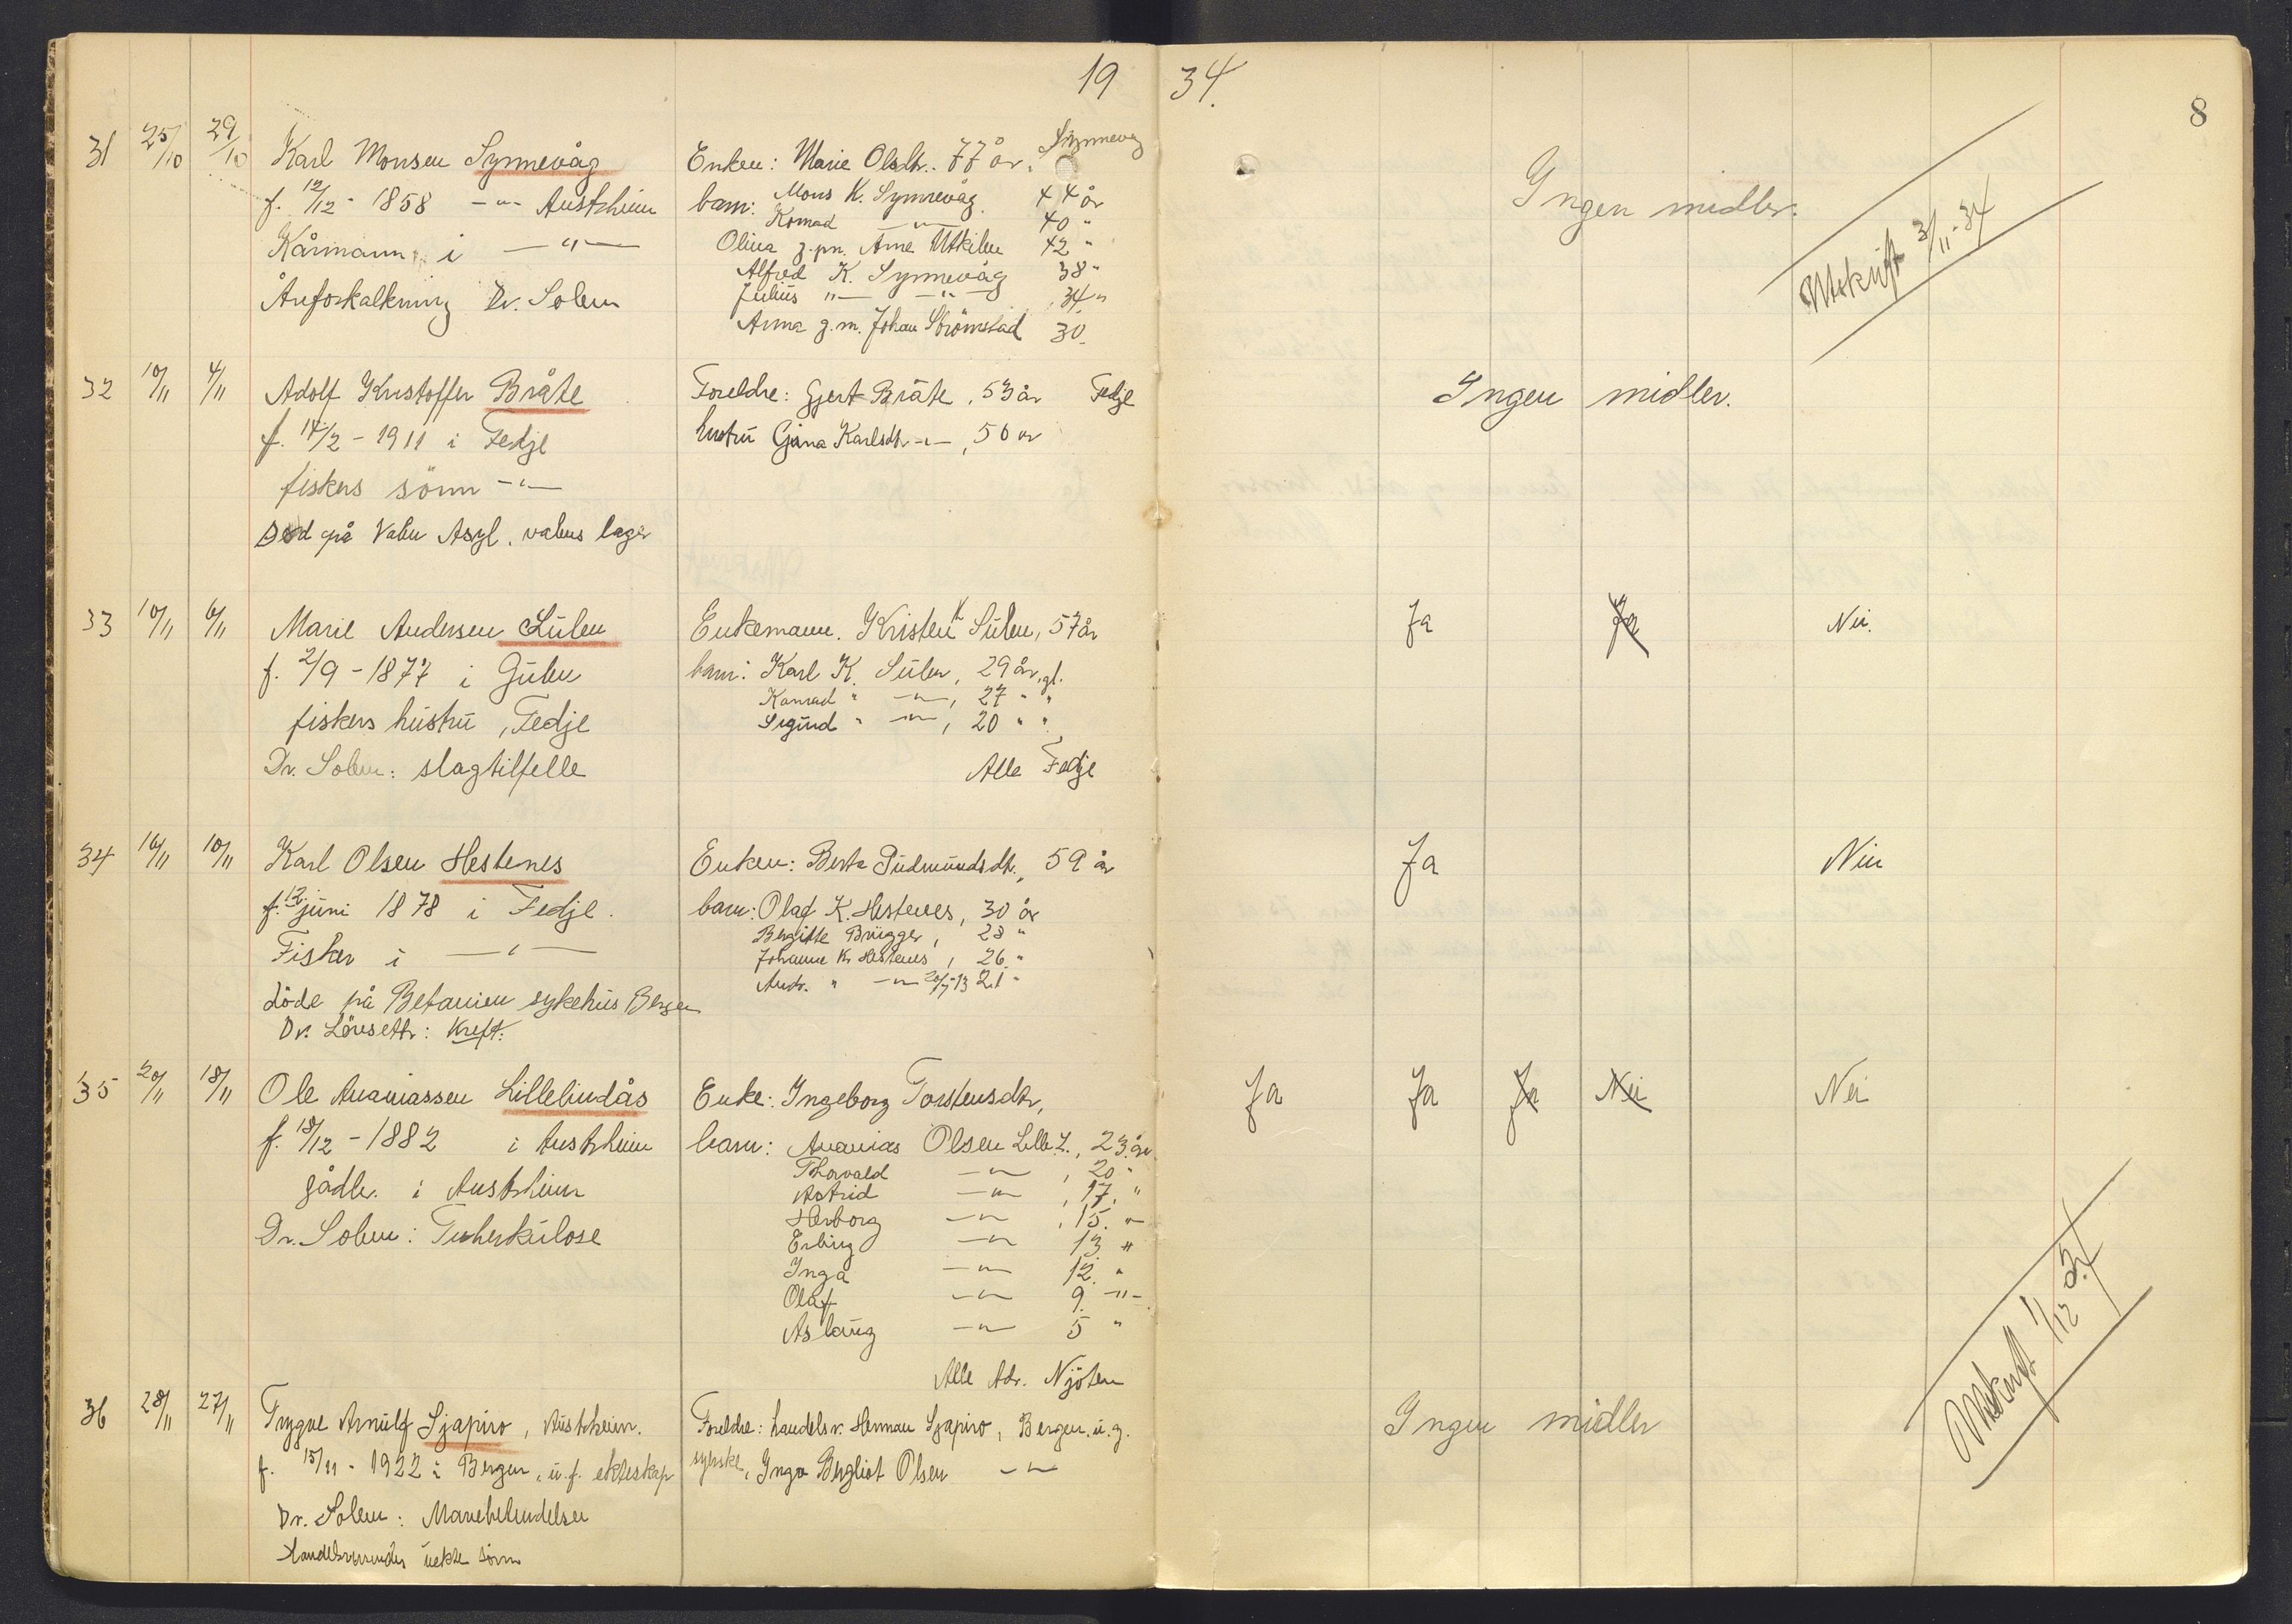 19 34.
8
31 25/10 29/10 Karl Monsen Synnevåg
f. 12/12 - 1858 -"- Austrheim
Kårmann i -"-
Åreforkalkning Dr. Solem
Enken: Marie Olsdtr. 77 år. Synnevåg
barn: Mons K. Synnevåg 44 år
Konrad -"- 40 "
Olina g.m. Arne Utkilen 42 "
Alfred K. Synnevåg 38 "
Julius "- -"- 34 "
Anna g.m. Johan Strömstad 30.
Ingen midler.
Utskrift 3/11-34
32 10/11 4/11 Adolf Kristoffer Bråte
f. 14/2 - 1911 i Fedje
fiskers sönn -"-
Död på Valen Asyl. valens lager
Foreldre: Gjert Bråte, 53 år Fedje
hustru Gina Karlsdtr -"-, 50 år
Ingen midler.
33 10/11 6/11 Marie Andersen Sulen
f. 2/9 - 1877 i Gulen
fiskers hustru, Fedje
Dr. Solem: slagtilfelle
Enkemann. Kristen K Sulen, 57 år
barn: Karl K. Sulen, 29 år, gl.
Konrad " -"-, 27 " "
Sigurd " -"-, 20 " "
Alle Fedje
Ja Ja Nei.
34 16/11 10/11 Karl Olsen Hestenes
f. 12. juni 1878 i Fedje.
Fisker i -"-
döde på Betanien sykehus Bergen
Dr. Lönsettr: Kreft.
Enken: Berta Gudmundsdtr., 59 år
barn: Olaf K. Hestenes, 30 år
Bergitte Brügger, 28 "
Johanne K. Hestenes, 26 "
Andr. " -"- 20/7-13 21 "
Ja Nei
35 20/11 18/11 Ole Ananiassen Lillelindås
f. 18/12 - 1882 i Austrheim
gådbr. i Austrheim
Dr. Solem: Tuberkulose
Enke: Ingeborg Torstensdtr,
barn: Ananias Olsen Lille L., 23 år
Thorvald -"-, 20 "
Astrid -"-, 17. "
Herborg -"-, 15. "
Erling -"- 13 "
Inga -"- 12. "
Olaf -"- 9. -"-
Aslaug -"- 5 "
Alle Adr. Njöten
Ja Ja Ja Nei Nei
Utskrift 1/12 34
36 28/11 27/11 Trygve Arnulf Sjapiro, Austrheim.
f. 15/11 - 1922 i Bergen, u.f. ekteskap
Dr. Solem: Mavebetendelse
Handelsreisendes uekte sönn
Foreldre: handelsr. Herman Sjapiro, Bergen. u.g.
syerske, Inga Bergliot Olsen -"-
Ingen midler